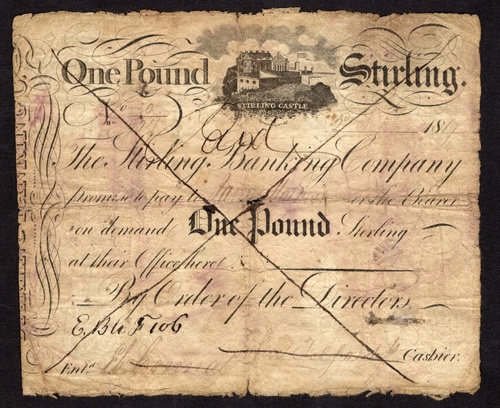 One Pound
Stirling.
STIRLING CASTLE
18
The Stirling Banking Company
promise to pay to or the Bearer
on demand One Pound Sterling
at their Office here
By Order of the Directors
E. B 4 F 106
Entd. Cashier.